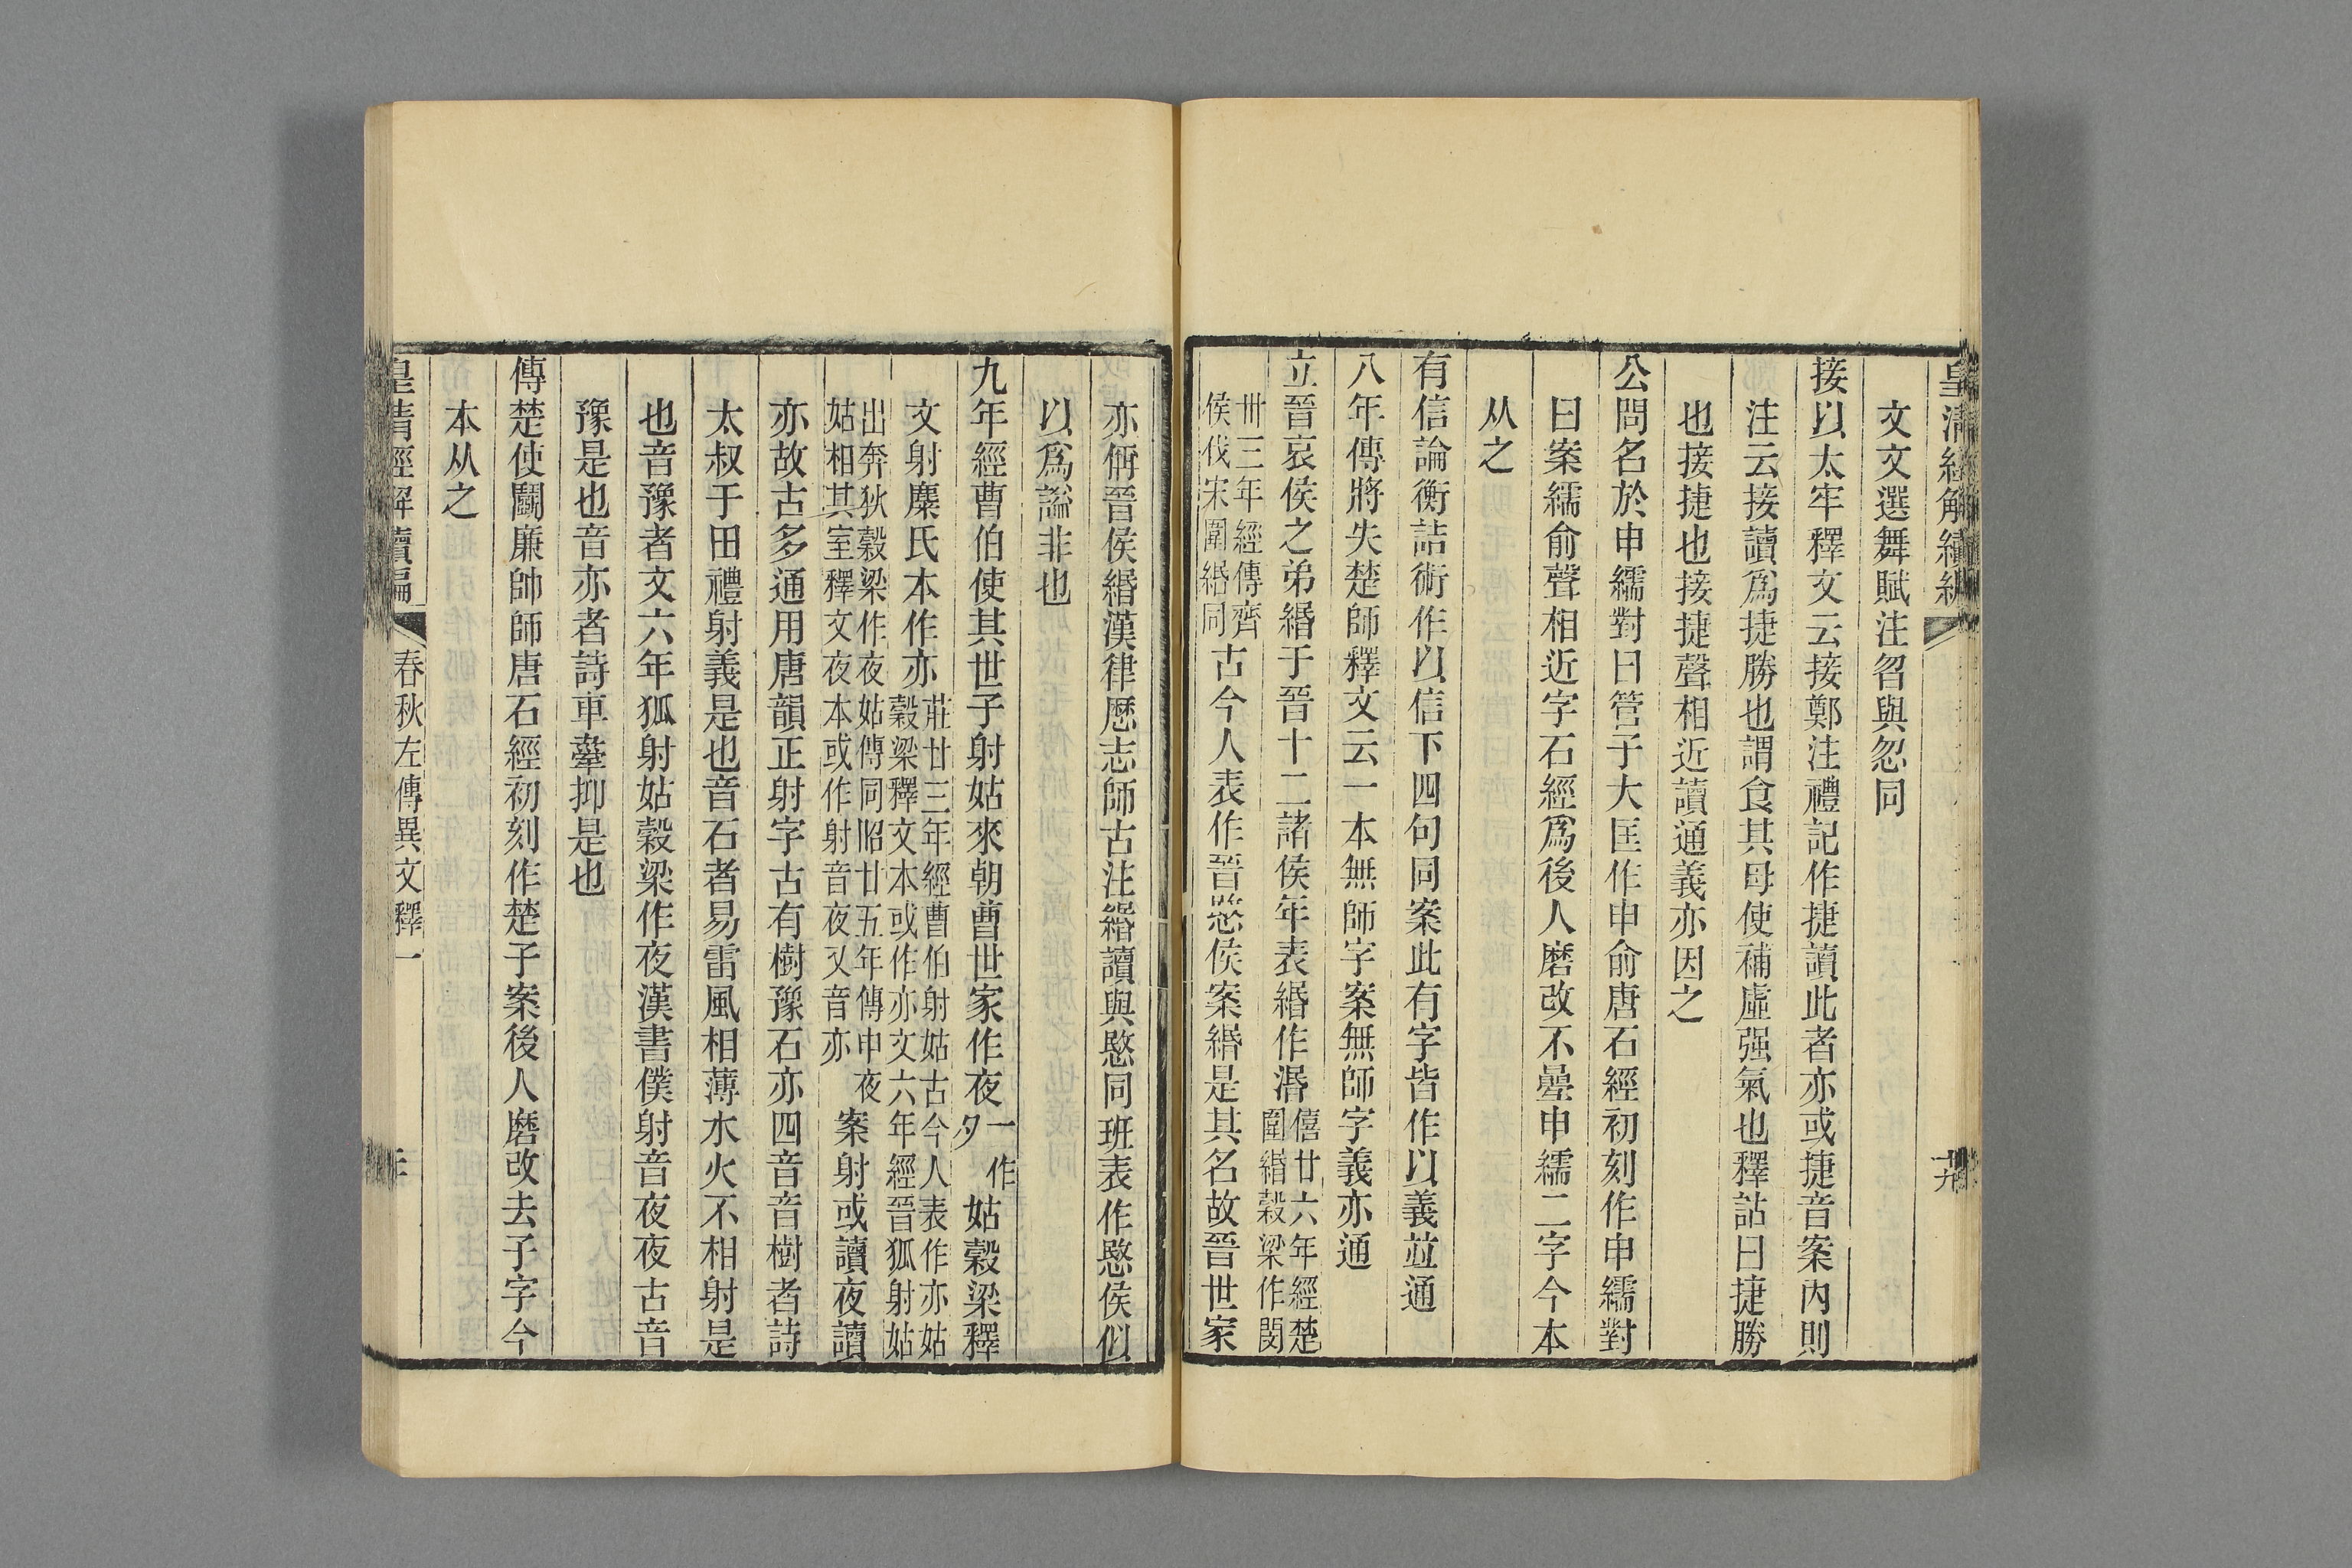 皇清經解續編
十九
文文選舞賦注曶與忽同
接以太牢釋文云接鄭注禮記作捷讀此者亦或捷音案內則
注云接讀爲捷勝也謂食其母使補虛强氣也釋詁曰捷勝
也接捷也接捷聲相近讀通義亦因之
公問名於申繻對曰管子大匡作申俞唐石經初刻作申繻對
曰案繻俞聲相近字石經爲後人磨改不㬪申繻二字今本
从之
有信論衡詰術作以信下四句同案此有字皆作以義竝通
八年傳將失楚師釋文云一本無師字案無師字義亦通
立晉哀侯之弟緡于晉十二諸侯年表緡作湣僖廿六年經楚圍緡穀梁作閔
卅三年經傳齊侯伐宋圍緡同古今人表作晉愍侯案緡是其名故晉世家
亦偁晉侯緡漢律厯志師古注緡讀與愍同班表作愍侯似
以爲謚非也
九年經曹伯使其世子射姑來朝曹世家作夜一作夕姑穀梁釋
文射麋氏本作亦莊廿三年經曹伯射姑古今人表作亦姑穀梁釋文本或作亦文六年經晉狐射姑
出奔狄穀梁作夜姑傳同昭廿五年傳申夜姑相其室釋文夜本或作射音夜又音亦案射或讀夜讀
亦故古多通用唐韻正射字古有樹豫石亦四音音樹者詩
太叔于田禮射義是也音石者易雷風相薄水火不相射是
也音豫者文六年狐射姑穀梁作夜漢書僕射音夜夜古音
豫是也音亦者詩車舝抑是也
傳楚使鬭廉帥師唐石經初刻作楚子案後人磨改去子字今
本从之
皇清經解續編
春秋左傳異文釋一